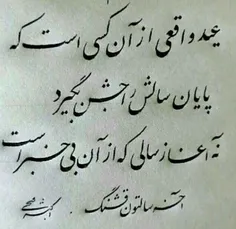 عید واقعی از آن کسی است که
پایان سالش را جشن بگیرد
نه آغاز سالی که از آن بی خبر است
آخر سالتون قشنگ